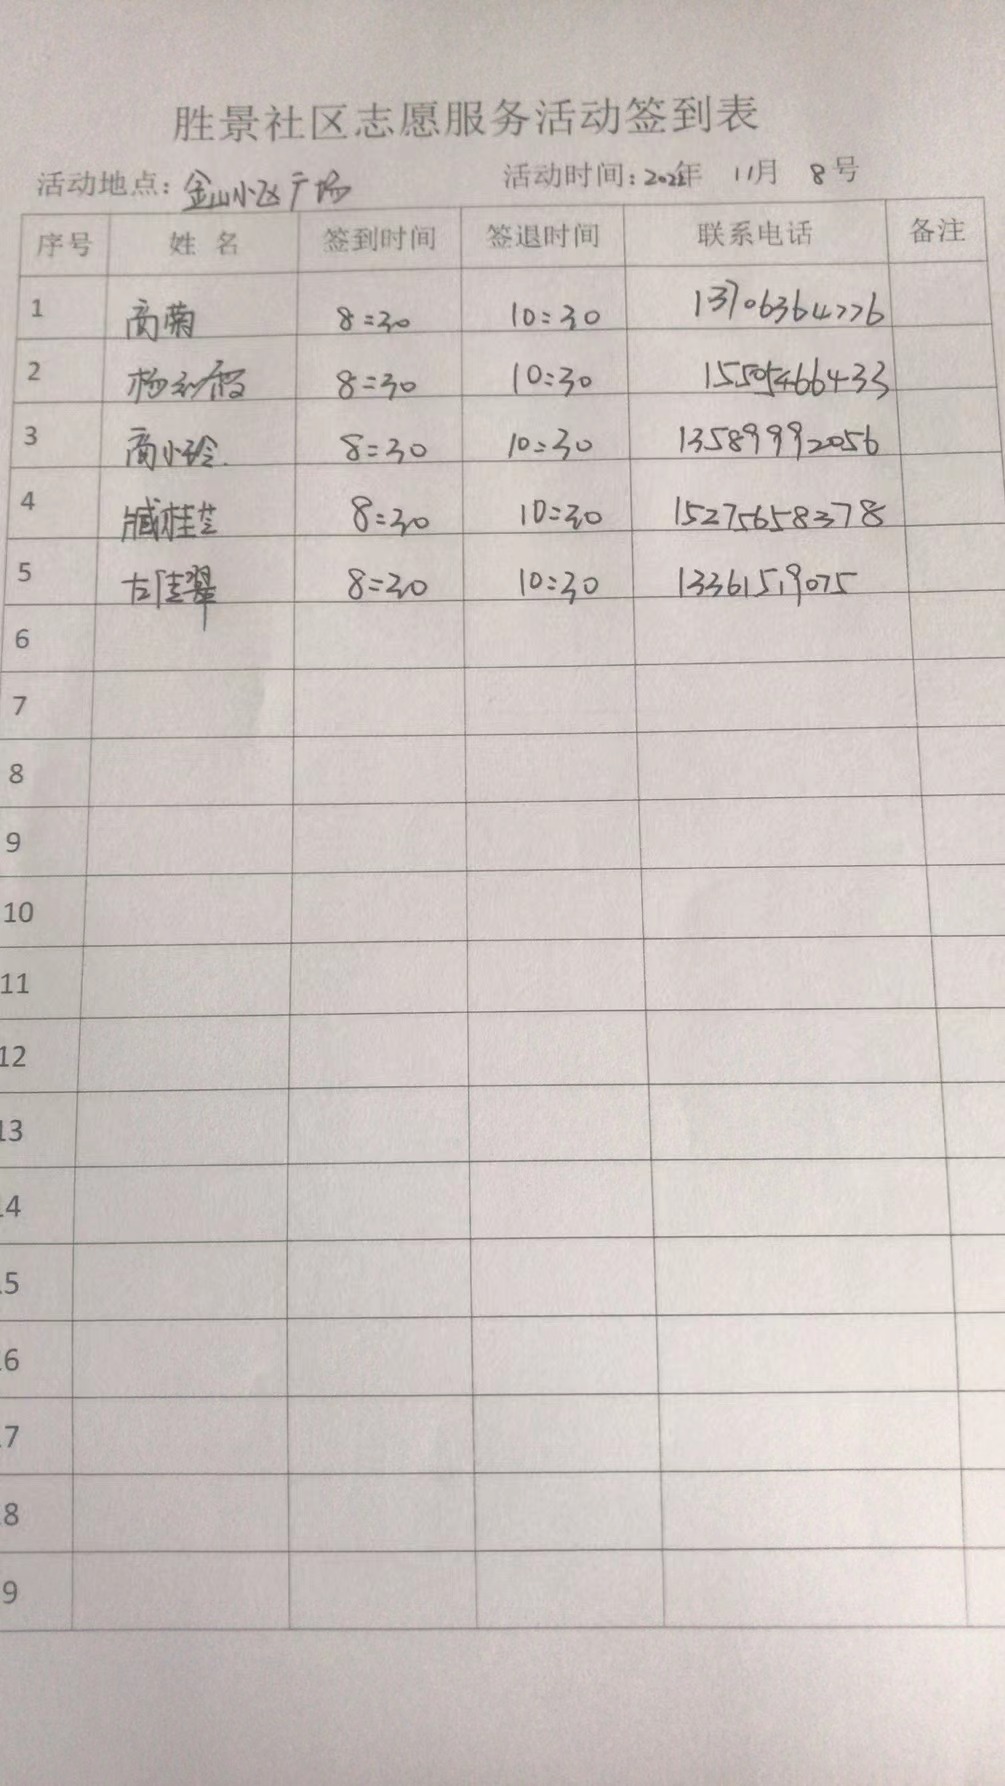 胜景社区志愿服务活动签到表
活动地点：金山小区广场 活动时间：2022年 11月 8号
序号 姓名 签到时间 签退时间 联系电话 备注
1 高菊 8:30 10:30 13706364776
2 8:30 10:30 15505466433
3 高小玲 8:30 10:30 13589992056
4 臧桂兰 8:30 10:30 15275658378
5 左佳翠 8:30 10:30 13361519075
6
7
8
9
10
11
12
13
14
15
16
17
18
19